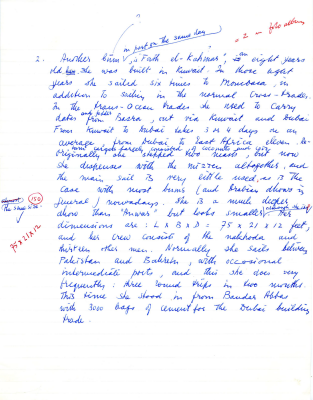 in port on the same day
2 - in photo album
2. Another būm, is "Fath el-Rahman", an eight years
old. She was built in Kuwait. In those eight
years she sailed six times to Mombasa, in
addition to sailing in the normal cross-trades.
In the trans-ocean trades she used to carry
dates from Basra, out via Kuwait and Dubai
From Kuwait to Dubai takes 3 or 4 days on an
average from Dubai to East Africa eleven.
Originally she stepped two masts, but now
she dispenses with the mizzen altogether, and
the main sail is very little used, as is the
case with most būms (and Arabian dhows in
general) nowadays. She is a much deeper
dhow than "Anwar" but looks smaller. Her
dimensions are: L x B x D = 75 x 21 x 12 feet,
and her crew consist of the nakhoda and
thirteen other men. Normally she sails between
Pakistan and Bahrein, with occasional
intermediate ports, and this she does very
frequently: three round trips in two months.
This time she stood in from Bandar Abbas
with 3000 bags of cement for the Dubai building
trade.
150
75 x 21 x 12